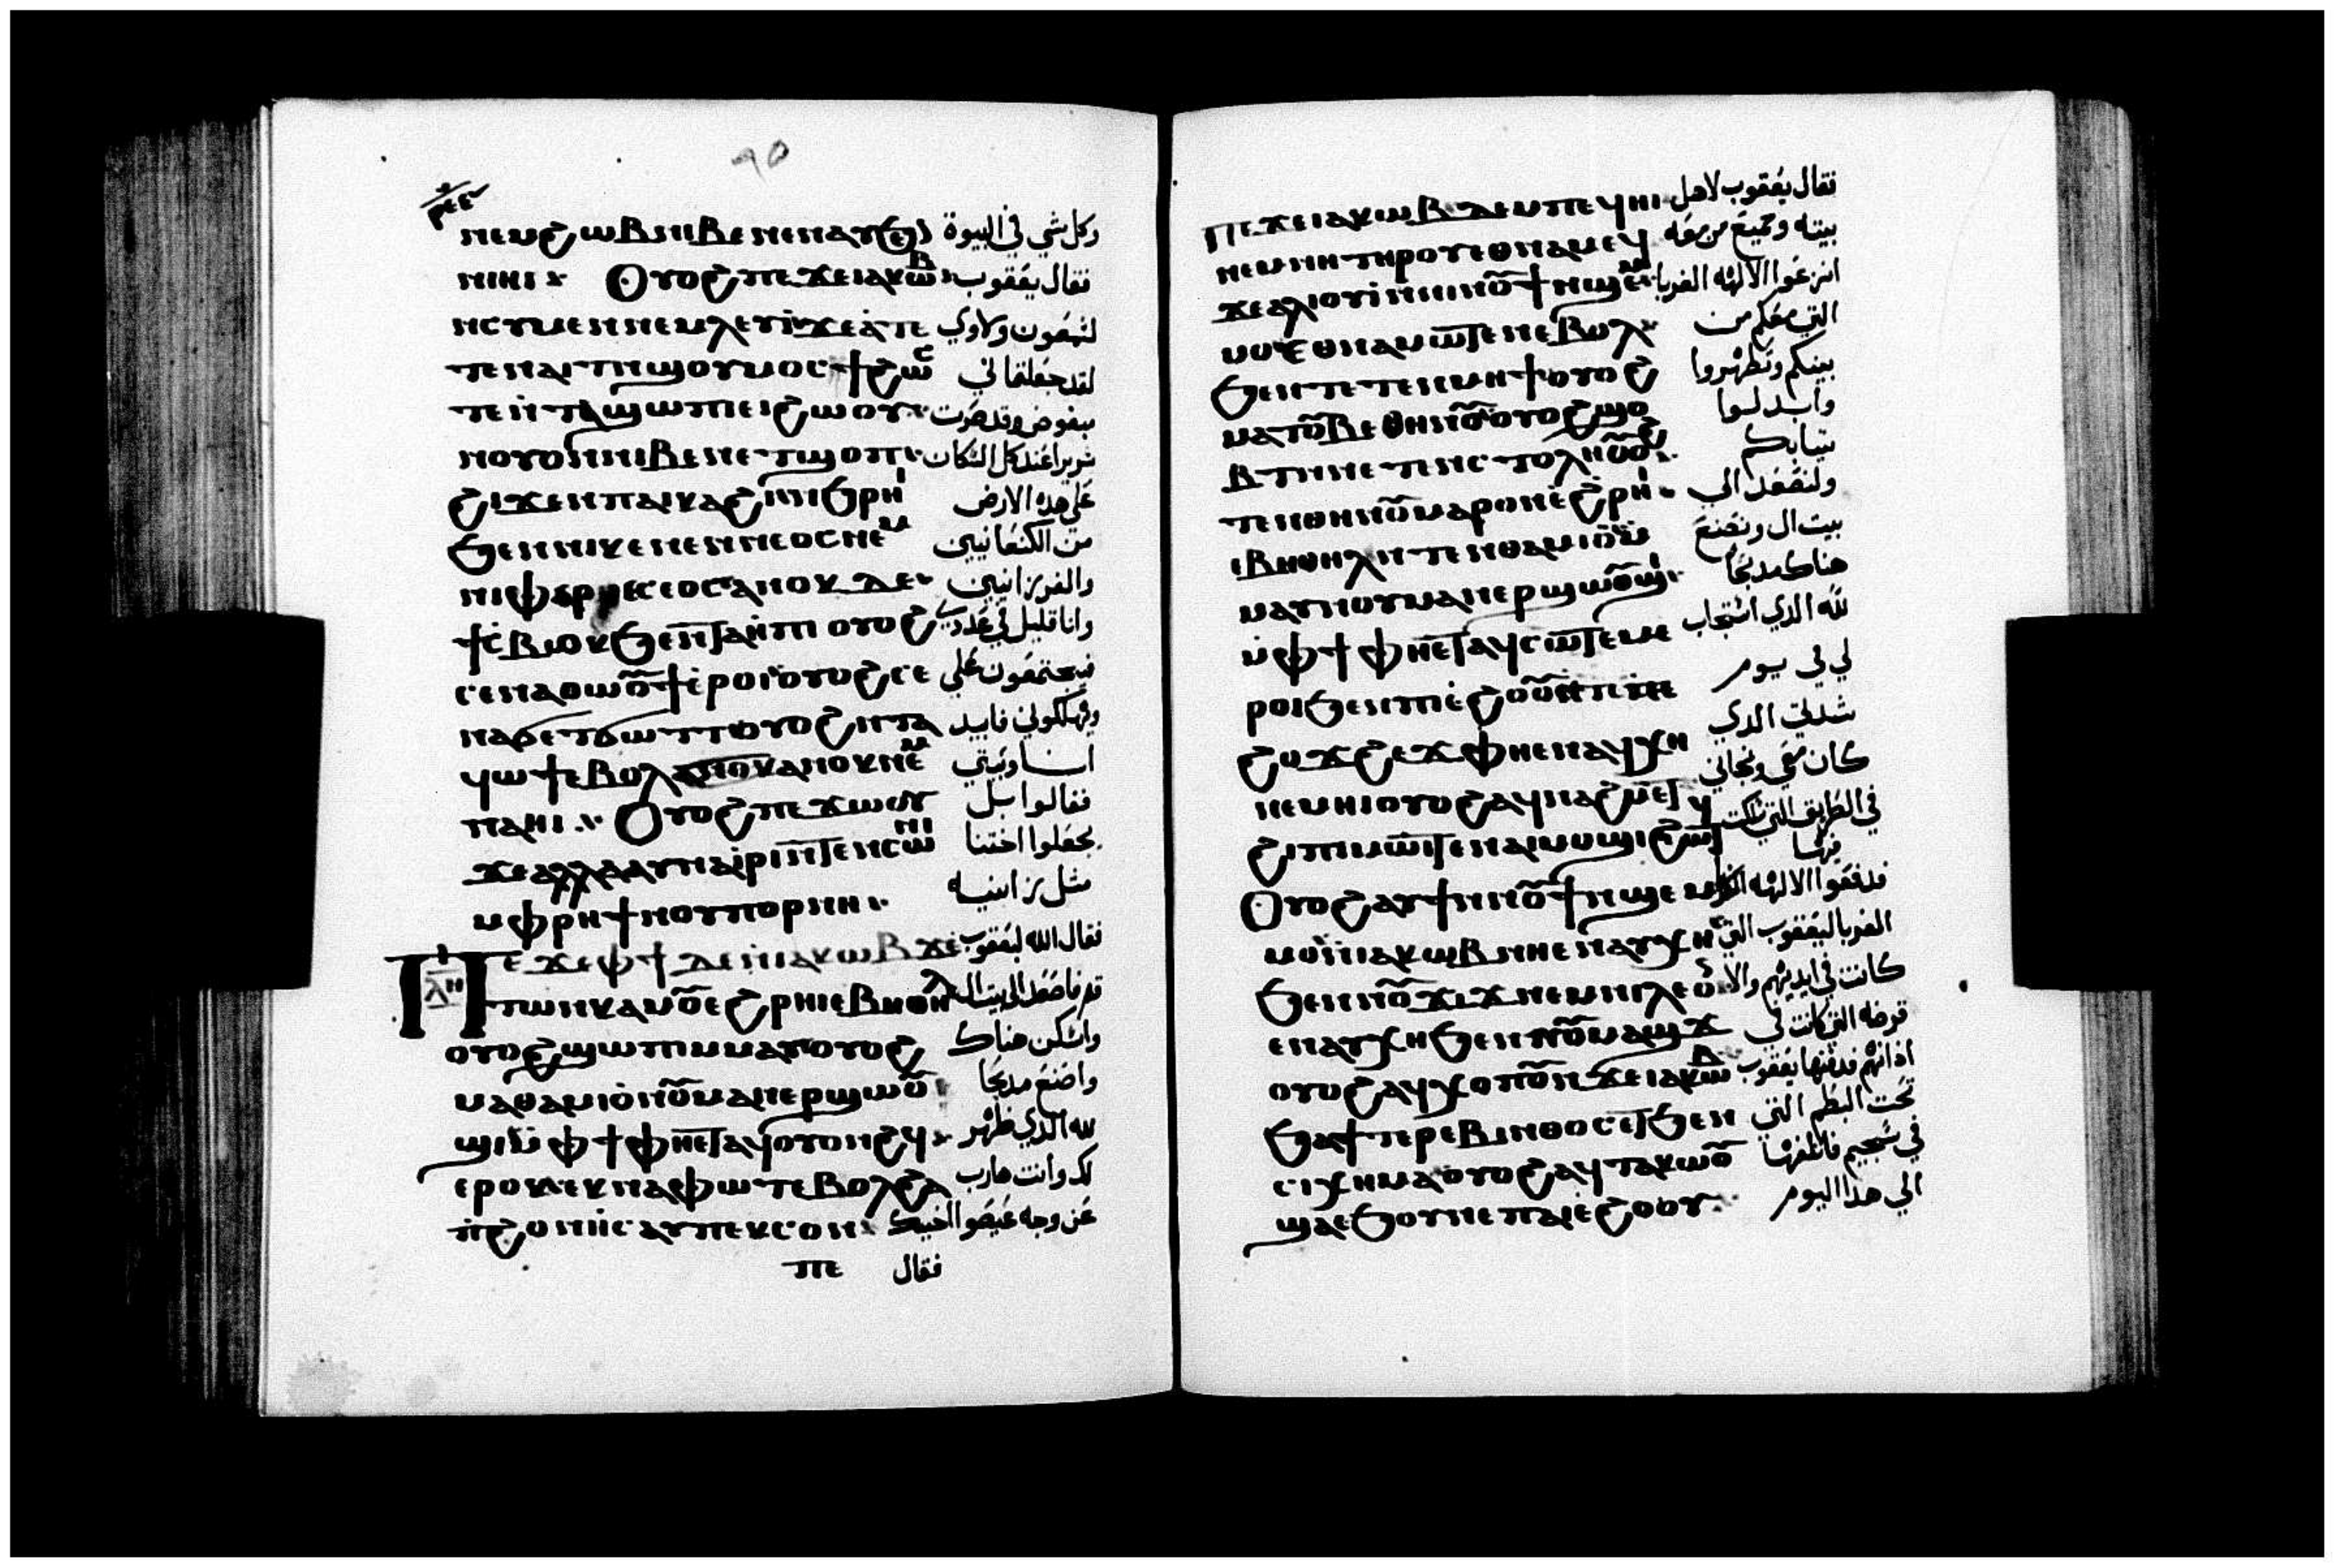 ⲣⲉⲉ
ⲛⲉⲙϩⲱⲃⲛⲓⲃⲉⲛⲉⲛⲁⲩϧⲉⲛ وكل شي في البيوة
ⲛⲓⲏⲓ ⲟⲩⲟϩⲡⲉϫⲉⲓⲁⲕⲱⲃ فقال يعقوب
ⲛⲥⲩⲙⲉⲱⲛⲛⲉⲙⲗⲉⲩⲓϫⲉⲁⲧⲉ لشمعون ولاوي
ⲧⲉⲛⲁⲓⲧⲡϣⲟⲩⲙⲟⲥϯϩⲱⲥ لقد جعلتماني
ⲧⲉⲛⲧⲁϣⲱⲡⲉⲓϩⲱⲟⲩ مبغوض وقد صرت
ⲛⲟⲩⲟⲛⲛⲓⲃⲉⲛⲉⲧϣⲟⲡ شريرا عند كل السكان
ϩⲓϫⲉⲛⲡⲁⲓⲕⲁϩⲓⲛϧⲣⲏⲓ علي هذه الارض
ϧⲉⲛⲛⲓⲭⲉⲛⲉⲛⲛⲉⲟⲥⲛⲉⲙ من الكنعانيين
ⲛⲓⲫⲉⲣⲉⲥⲉⲟⲥⲁⲛⲟⲕⲇⲉ والفرزانيين
ϯⲥⲃⲟⲕϧⲉⲛⲧⲁⲏⲡⲓⲟⲩⲟϩ وانا قليل في عددي
ⲥⲉⲛⲁⲑⲱⲟⲩϯⲉⲣⲟⲓⲟⲩⲟϩⲥⲉ فيجتمعون علي
ⲛⲁϭⲉⲧϭⲱⲧⲧⲟⲩⲟϩⲛⲧⲁ ويهلكوني فابيد
ϥⲱϯⲉⲃⲟⲗⲁⲛⲟⲕⲁⲛⲟⲕⲛⲉⲙ انا وبيتي
ⲡⲁⲏⲓ ⲟⲩⲟϩⲡⲉϫⲱⲟⲩ فقالوا بل
ϫⲉⲁⲗⲗⲁⲁⲩⲛⲁⲓⲣⲓⲛⲧⲉⲛⲥⲱⲛⲓ يجعلوا اختنا
ⲙⲫⲣⲏϯⲛⲟⲩⲡⲟⲣⲛⲏ مثل زانيه
ⲡⲉϫⲉⲫϯⲇⲉⲛⲓⲁⲕⲱⲃϫⲉ فقال الله ليعقوب
ⲗⲏ
ⲧⲱⲛⲕⲙⲁⲟⲩⲉϩⲣⲏⲓⲉⲃⲏⲑⲏⲗ قم فاصعد الي بيت ال
ⲟⲩⲟϩϣⲱⲡⲓⲙⲙⲁⲩⲟⲩⲟϩ واسكن هناك
ⲙⲁⲑⲁⲙⲓⲟⲛⲟⲩⲙⲁⲛⲉⲣϣⲱⲟⲩ واصنع مدبحا
ϣⲓⲙⲫϯⲫⲏⲉⲧⲁϥⲟⲩⲟⲛϩϥ لله الذي ظهر
ⲉⲣⲟⲕⲉⲕⲛⲁⲫⲱⲧⲉⲃⲟⲗϩⲁ لك وانت هارب
ⲡϩⲟⲛⲏⲥⲁⲩⲡⲉⲕⲥⲟⲛ عن وجه عيصوا اخيك
ⲡⲉ فقال
ⲡⲉϫⲉⲓⲁⲕⲱⲃⲇⲉⲙⲡⲉϥⲏⲓ فقال يعقوب لاهل
ⲛⲉⲙⲛⲏⲧⲏⲣⲟⲩⲉⲑⲛⲁⲙⲉϥ بيته وجميع من معه
ϫⲉⲁⲗⲓⲟⲩⲓⲛⲛⲓⲛⲟⲩϯⲛϣⲉⲙ انزعوا الالهه الغربا
ⲙⲟⲉⲑⲛⲁⲙⲱⲧⲉⲛⲉⲃⲟⲗ التي معكم من
ϧⲉⲛⲧⲉⲧⲉⲛⲙⲏϯⲟⲩⲟϩ بينكم وتطهروا
ⲙⲁⲧⲟⲩⲃⲉⲑⲏⲛⲟⲩⲟⲩⲟϩϣⲟ وابدلوا
ⲃⲧⲛⲉⲧⲉⲛⲥⲧⲟⲗⲏⲟⲩⲟϩ ثيابكم
ⲧⲉⲛⲑⲏⲛⲟⲩⲙⲁⲣⲟⲛⲉϩⲣⲏⲓ ولنصعد الي
ⲉⲃⲏⲑⲏⲗⲛⲧⲉⲛⲑⲁⲙⲓⲟⲙ بيت ال ونصنع
ⲙⲁⲩⲛⲟⲩⲙⲁⲛⲉⲣϣⲱⲟⲩϣⲓ هناك مدبحا
ⲙⲫϯⲫⲏⲉⲧⲁϥⲥⲱⲧⲉⲙⲉ لله الذي استجاب
ⲣⲟⲓϧⲉⲛⲡⲓⲉϩⲟⲟⲩⲛⲧⲉ لي في يوم
ϩⲟϫϩⲉϫⲫⲏⲉⲛⲁϥⲭⲏ شدتي الذي
ⲛⲉⲙⲏⲓⲟⲩⲟϩⲁϥⲛⲁϩⲙⲉⲧ كان معي ونجاني
ϩⲓⲡⲓⲙⲱⲓⲧⲉⲛⲁⲓⲙⲟϣⲓϩⲓⲱⲧϥ في الطريق التي سلكت فيها
ⲟⲩⲟϩⲁⲩϯⲛⲛⲟⲩϯⲛϣⲉⲙ فدفعوا الالهه
ⲙⲟⲛⲓⲁⲕⲱⲃⲛⲏⲉⲛⲁⲩⲭⲏ الغربا ليعقوب التي
ϧⲉⲛⲛⲟⲩϫⲓϫⲛⲉⲙⲛⲓⲗⲉⲟⲛ كانت في ايديهم والا
ⲉⲛⲁⲩⲭⲏϧⲉⲛⲛⲟⲩⲙⲁϣϫ قرطه التي كانت في
ⲟⲩⲟϩⲁϥⲭⲟⲡⲟⲩⲛϫⲉⲓⲁⲕⲱⲃ اذانهم فدفنها يعقوب
ϧⲁϯⲧⲉⲣⲉⲃⲓⲛⲑⲟⲥⲉⲧϧⲉⲛ تحت البطم التي
ⲥⲓⲭⲏⲙⲁⲟⲩⲟϩⲁϥⲧⲁⲕⲱⲟⲩ في سجيم فاتلفها
ϣⲁⲉϧⲟⲩⲛⲉⲡⲁⲓⲉϩⲟⲟⲩ الي هدا اليوم